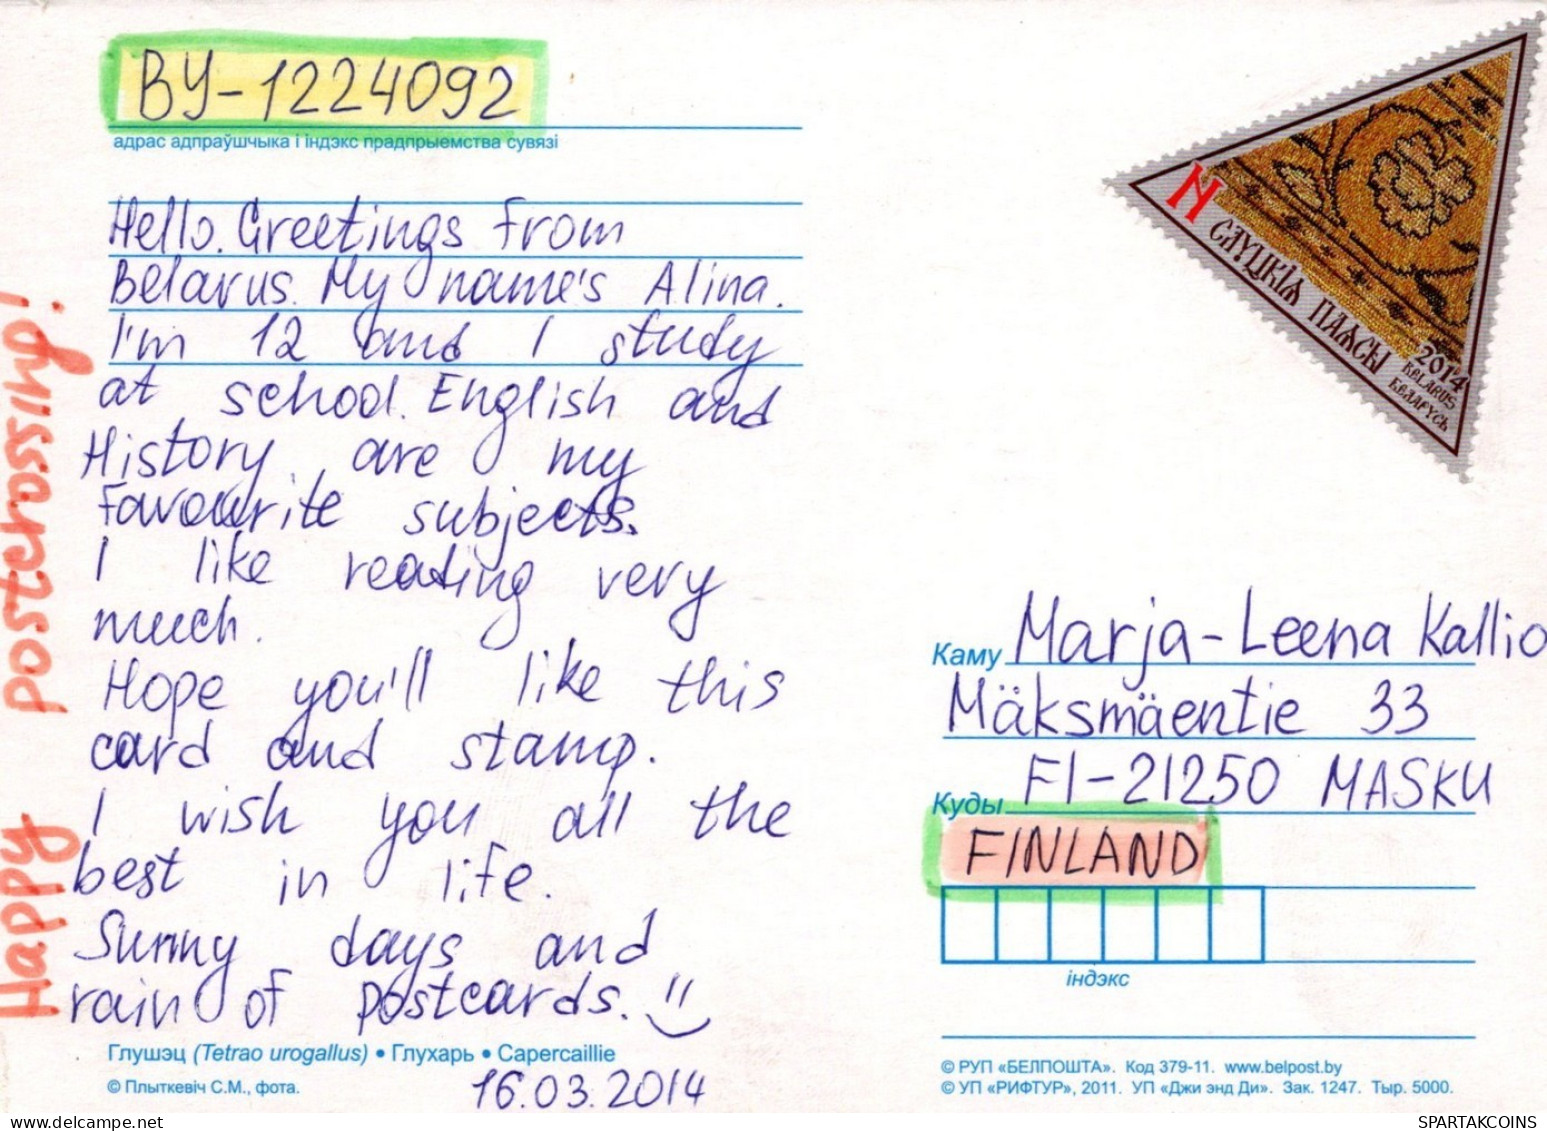 BY-1224092
адрас адпраўшчыка і індэкс прадпрыемства сувязі
Hello. Greetings from
Belarus. My name's Alina.
I'm 12 and I study
at school. English and
History are my
favourite subjects.
I like reading very
much.
Hope you'll like this
card and stamp.
I wish you all the
best in life.
Sunny days and
rain of postcards.
Глушэц (Tetrao urogallus) • Глухарь • Capercaillie
© Плыткевіч С.М., фота.
16.03.2014
Happy postcrossing!
N
СЛУЦКІЯ ПАЯСЫ
2014
BELARUS
БЕЛАРУСЬ
Каму Marja-Leena Kallio
Mäksmäentie 33
Куды FI-21250 MASKU
FINLAND
індэкс
© РУП «БЕЛПОШТА». Код 379-11. www.belpost.by
© УП «РИФТУР», 2011. УП «Джи энд Ди». Зак. 1247. Тыр. 5000.
SPARTAKCOINS
delcampe.net